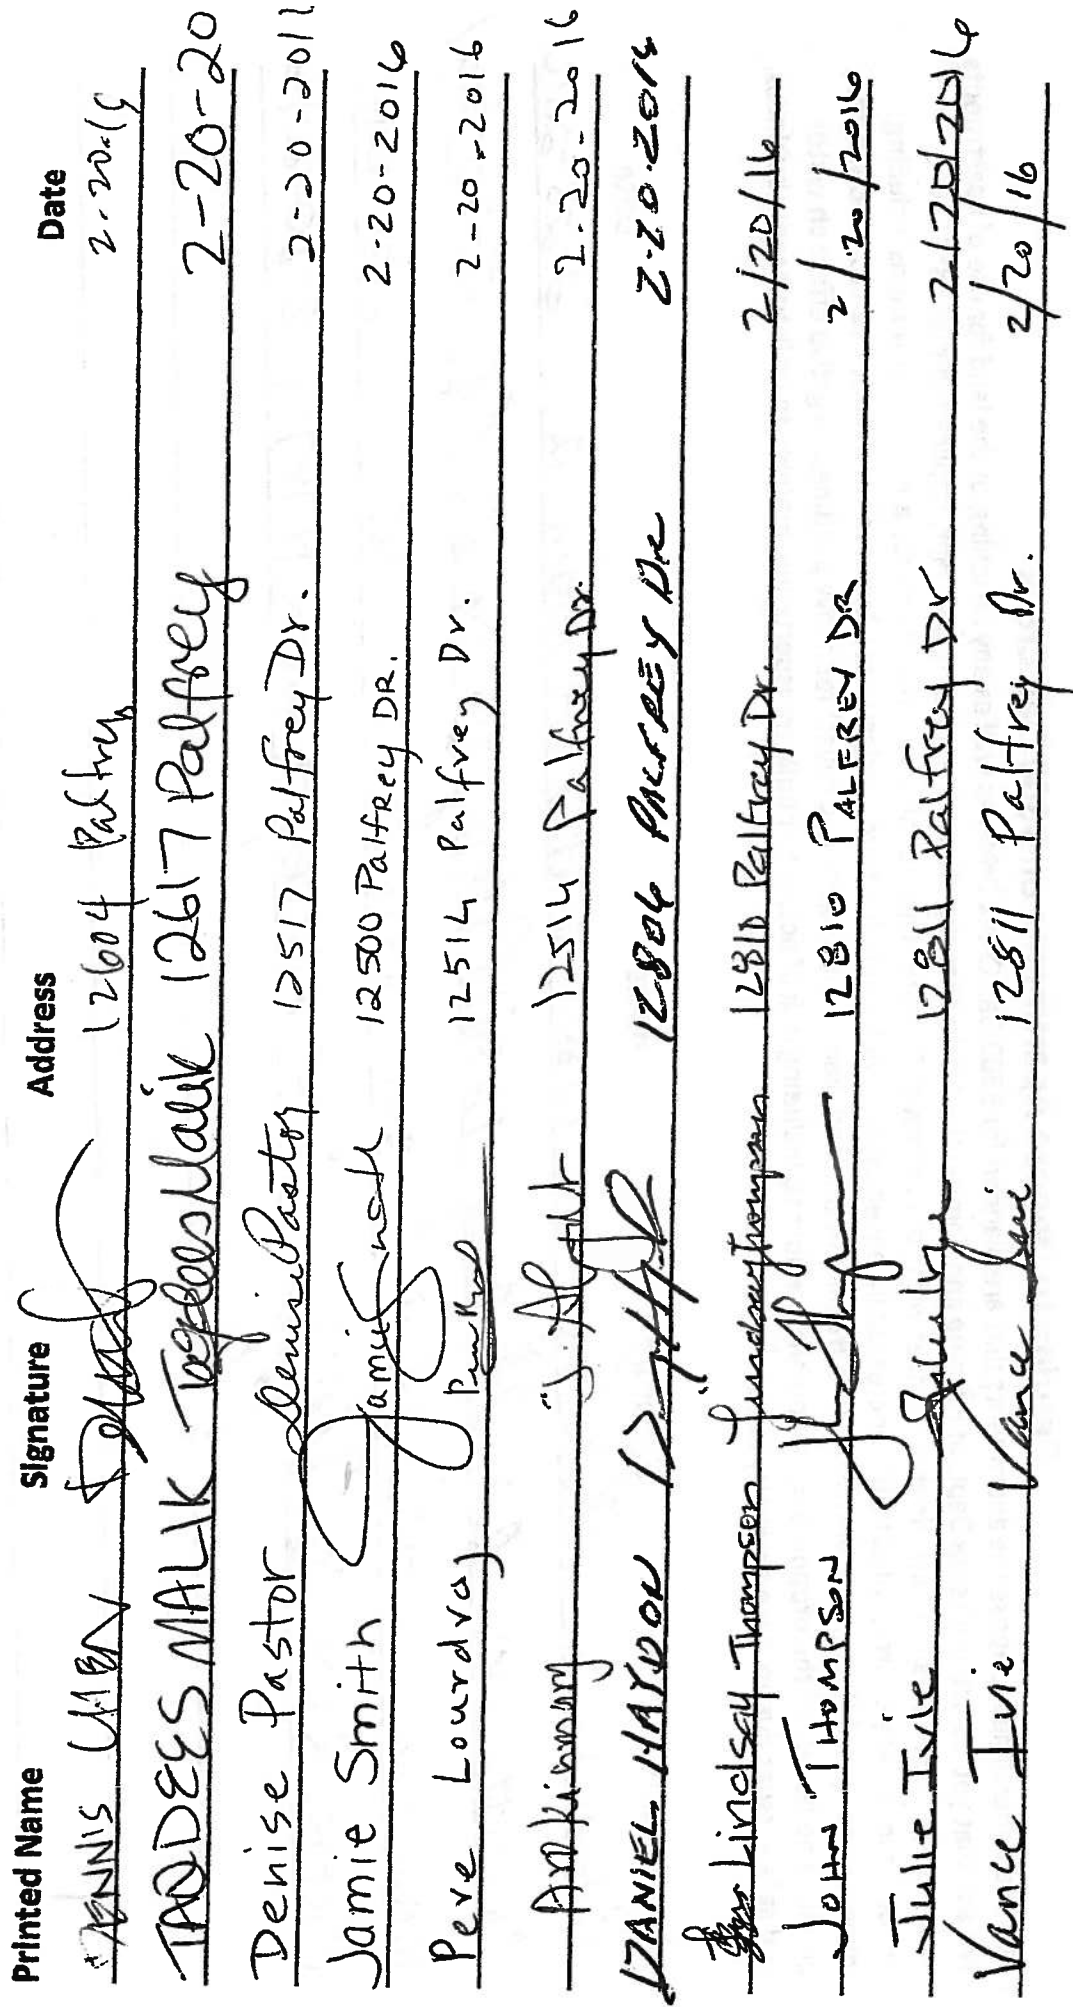 Printed Name Signature Address Date
DENNIS 12604 Palfrey 2-20-16
TAQDEES MALIK Taqdees Malik 12617 Palfrey 2-20-20
Denise Pastor Denise Pastor 12517 Palfrey Dr. 2-20-201
Jamie Smith Jamie Smith 12500 Palfrey DR. 2-20-2016
Peve Lourdraj 12514 Palfrey Dr. 2-20-2016
12514 Palfrey Dr. 2-20-2016
DANIEL HAYDON 12806 PALFREY DR 2-20-2016
Lindsay Thompson Lindsay Thompson 12810 Palfrey Dr. 2/20/16
JOHN THOMPSON 12810 PALFREY DR 2/20/2016
Julie Ivie 12811 Palfrey Dr 2/20/2016
Vance Ivie Vance Ivie 12811 Palfrey Dr. 2/20/16